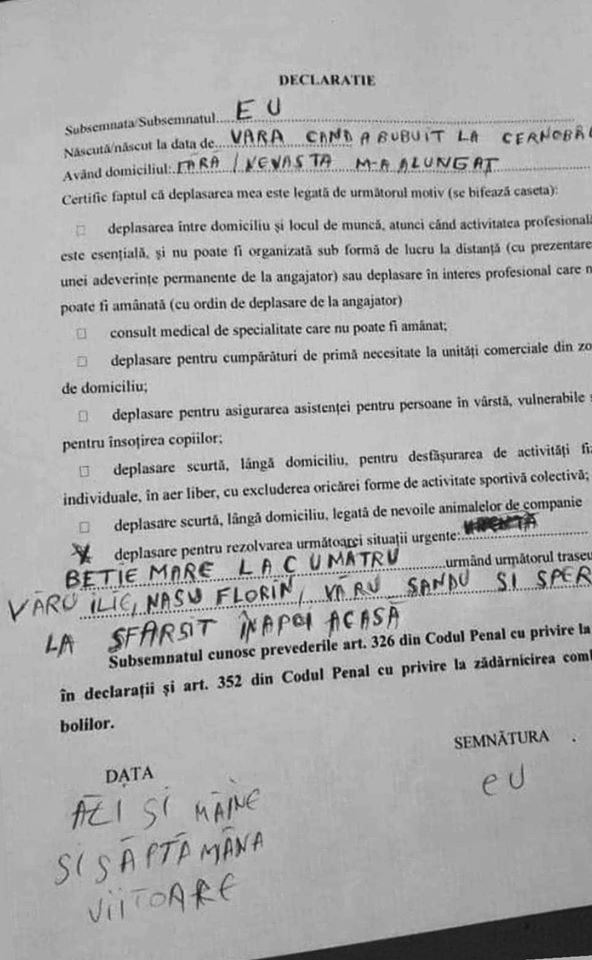 DECLARATIE
Subsemnata/Subsemnatul....EU
Născută/născut la data de....VARA CAND A BUBUIT LA CERNOBÂL
Având domiciliul: FĂRĂ / NEVASTA M-A ALUNGAT
Certific faptul că deplasarea mea este legată de următorul motiv (se bifează caseta):
□ deplasarea între domiciliu și locul de muncă, atunci când activitatea profesională
este esențială, și nu poate fi organizată sub formă de lucru la distanță (cu prezentare
unei adeverințe permanente de la angajator) sau deplasare în interes profesional care n
poate fi amânată (cu ordin de deplasare de la angajator)
□ consult medical de specialitate care nu poate fi amânat;
□ deplasare pentru cumpărături de primă necesitate la unități comerciale din zo
de domiciliu;
□ deplasare pentru asigurarea asistenței pentru persoane în vârstă, vulnerabile s
pentru însoțirea copiilor;
□ deplasare scurtă, lângă domiciliu, pentru desfășurarea de activități fiz
individuale, în aer liber, cu excluderea oricărei forme de activitate sportivă colectivă;
□ deplasare scurtă, lângă domiciliu, legată de nevoile animalelor de companie
X deplasare pentru rezolvarea următoarei situații urgente:
BEȚIE MARE LA CUMATRU urmând următorul traseu
VĂRU ILIE, NAȘU FLORIN, VĂRU SANDU SI SPER
LA SFÂRSIT ÎNAPOI ACASĂ
Subsemnatul cunosc prevederile art. 326 din Codul Penal cu privire la
în declarații și art. 352 din Codul Penal cu privire la zădărnicirea comb
bolilor.
DATA
SEMNĂTURA .
AZI ȘI MÂINE
SI SĂPTĂMÂNA
VIITOARE
eu